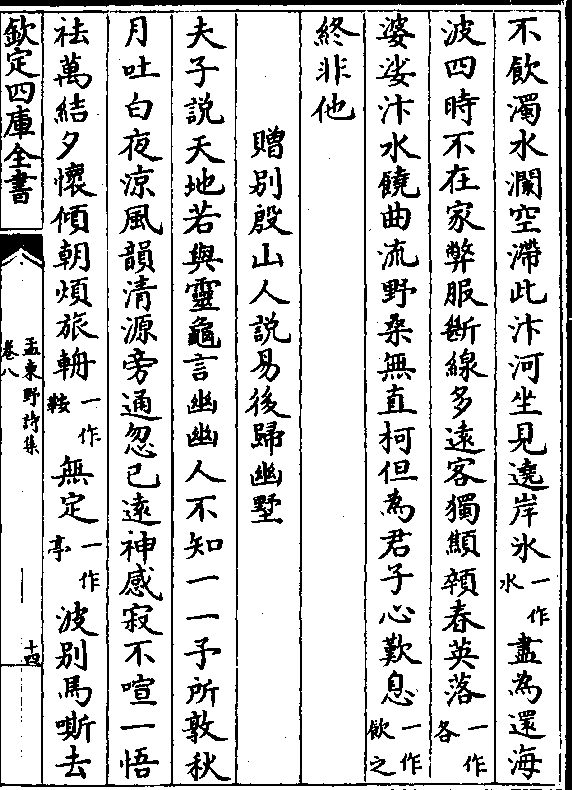 不飲濁水瀾空滯此汴河坐見遶岸氷一作水盡為還海
波四時不在家弊服斷線多逺客獨顦顇春英落一作各
婆娑汴水饒曲流野桑無直柯但為君子心歎息一作飲之
終非他
贈别殷山人説易後歸幽墅
夫子説天地若與靈龜言幽幽人不知一一予所敦秋
月吐白夜凉風韻清源旁通忽已逺神感寂不喧一悟
袪萬結夕懷傾朝煩旅輈一作鞍無定一作亭波别馬嘶去
欽定四庫全書
孟東野詩集
卷八
十四